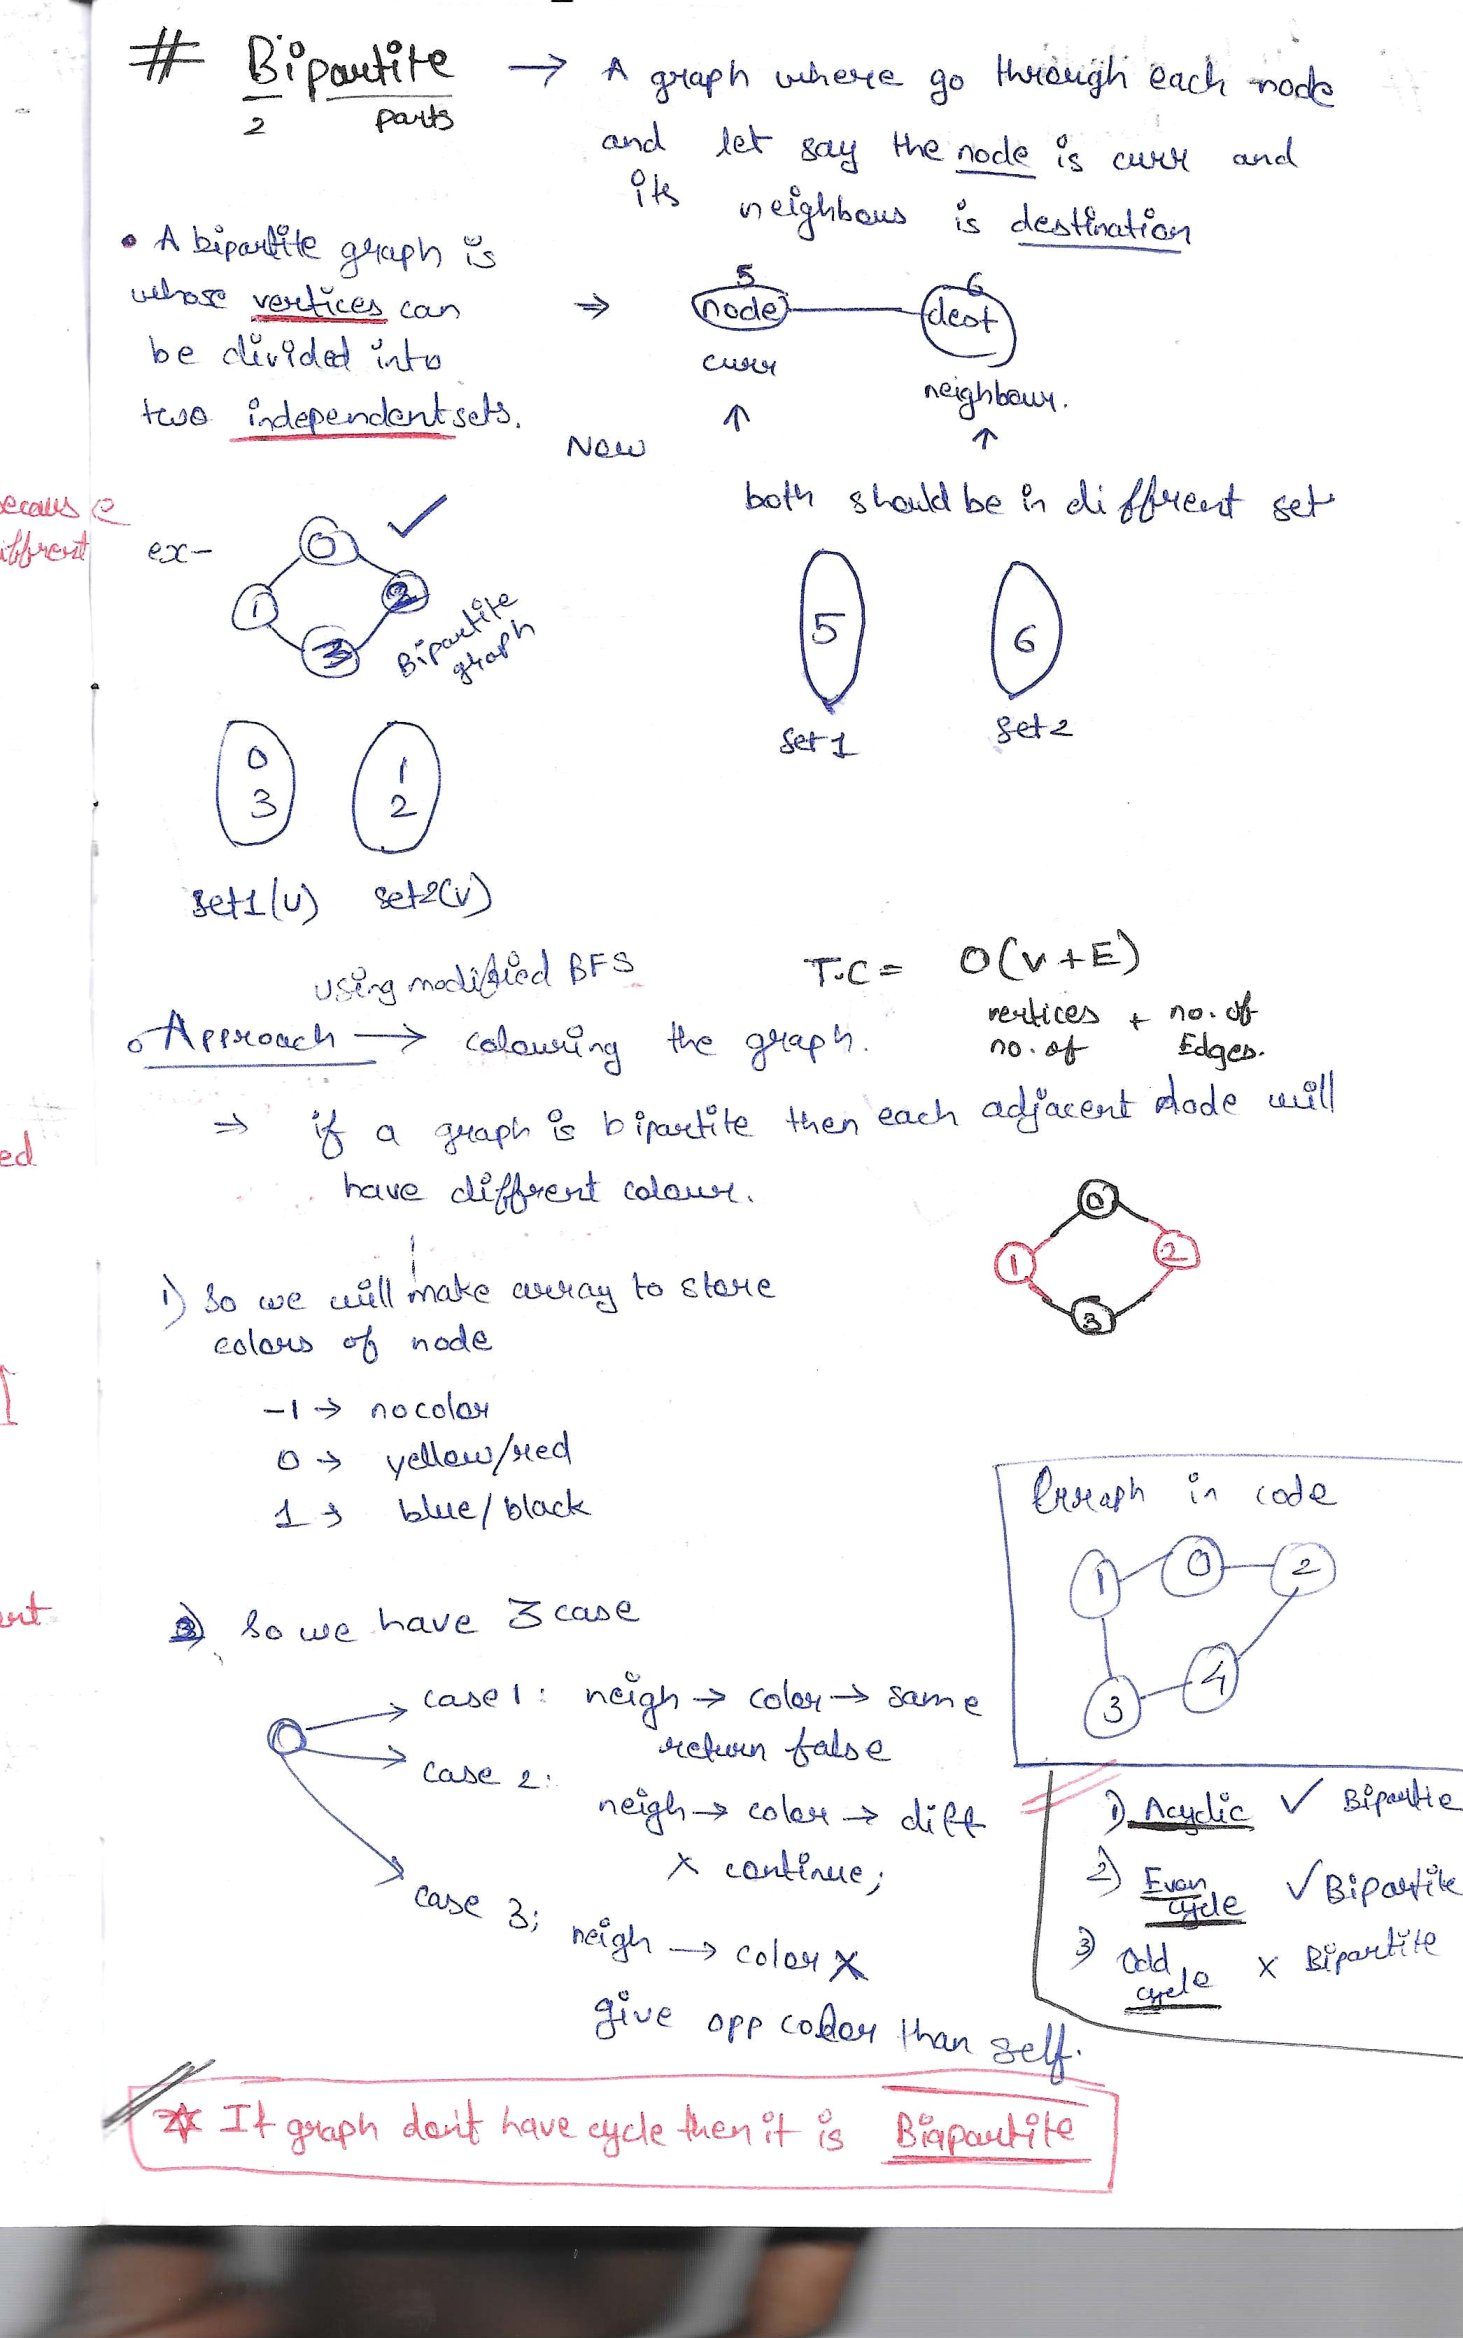 # Bipartite → A graph where go through each node
2 parts
and let say the node is curr and
its neighbous is destination
• A bipartite graph is
whose vertices can
be divided into
two independent sets.
⇒ 5 6
node dest
curr neighbour.
↑ ↑
Now
both should be in diffrent set
5 6
set 1 set 2
ecause
iffrent
ex-
0
1 2
3
Bipartite
graph
0 1
3 2
set1(U) set2(V)
using modified BFS
T.C = O(V+E)
vertices + no. of
no. of Edges.
o Approach → colouring the graph.
⇒ if a graph is bipartite then each adjacent node will
have diffrent colour.
ed
0
1 2
3
1) So we will make array to store
colors of node
-1 → no color
0 → yellow/red
1 → blue/black
Graph in code
1 0 2
3 4
2) So we have 3 case
case 1: neigh → color → same
return false
case 2:
neigh → color → diff
x continue;
case 3;
neigh → color x
give opp color than self.
1) Acyclic ✓ Bipartie
2) Even ✓ Bipartite
cycle
3) Odd x Bipartite
cycle
☆ If graph don't have cycle then it is Biapartite